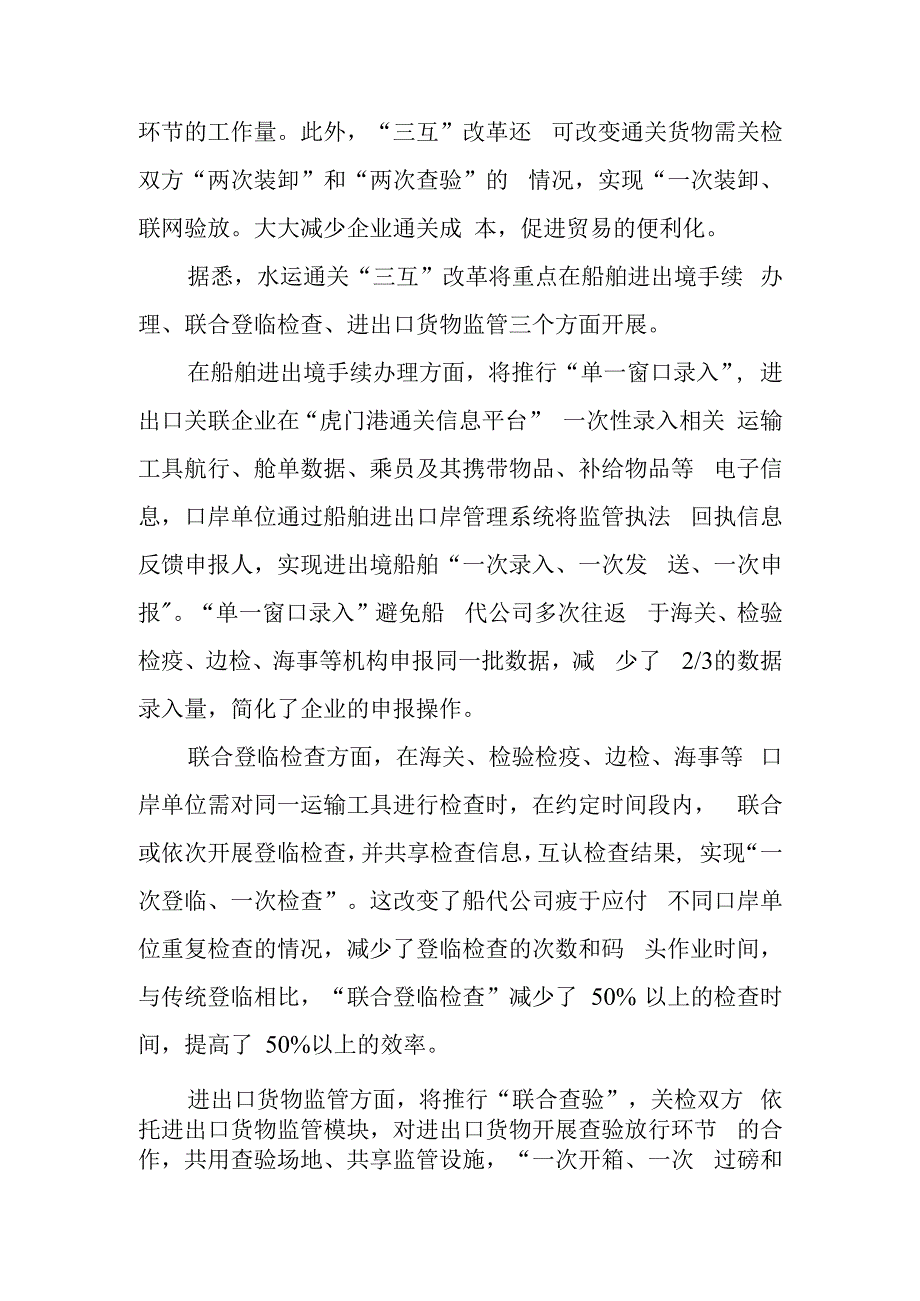 环节的工作量。此外，“三互”改革还 可改变通关货物需关检
双方“两次装卸”和“两次查验”的 情况，实现“一次装卸、
联网验放。大大减少企业通关成 本，促进贸易的便利化。
据悉，水运通关“三互”改革将重点在船舶进出境手续 办
理、联合登临检查、进出口货物监管三个方面开展。
在船舶进出境手续办理方面，将推行“单一窗口录入”, 进
出口关联企业在“虎门港通关信息平台” 一次性录入相关 运输
工具航行、舱单数据、乘员及其携带物品、补给物品等 电子信
息，口岸单位通过船舶进出口岸管理系统将监管执法 回执信息
反馈申报人，实现进出境船舶“一次录入、一次发 送、一次申
报"。“单一窗口录入”避免船 代公司多次往返 于海关、检验
检疫、边检、海事等机构申报同一批数据，减 少了 2/3的数据
录入量，简化了企业的申报操作。
联合登临检查方面，在海关、检验检疫、边检、海事等 口
岸单位需对同一运输工具进行检查时，在约定时间段内， 联合
或依次开展登临检查，并共享检查信息，互认检查结果, 实现“一
次登临、一次检查”。这改变了船代公司疲于应付 不同口岸单
位重复检查的情况，减少了登临检查的次数和码 头作业时间，
与传统登临相比，“联合登临检查”减少了 50% 以上的检查时
间，提高了 50%以上的效率。
进出口货物监管方面，将推行“联合查验”，关检双方 依
托进出口货物监管模块，对进出口货物开展查验放行环节 的合
作，共用查验场地、共享监管设施，“一次开箱、一次 过磅和